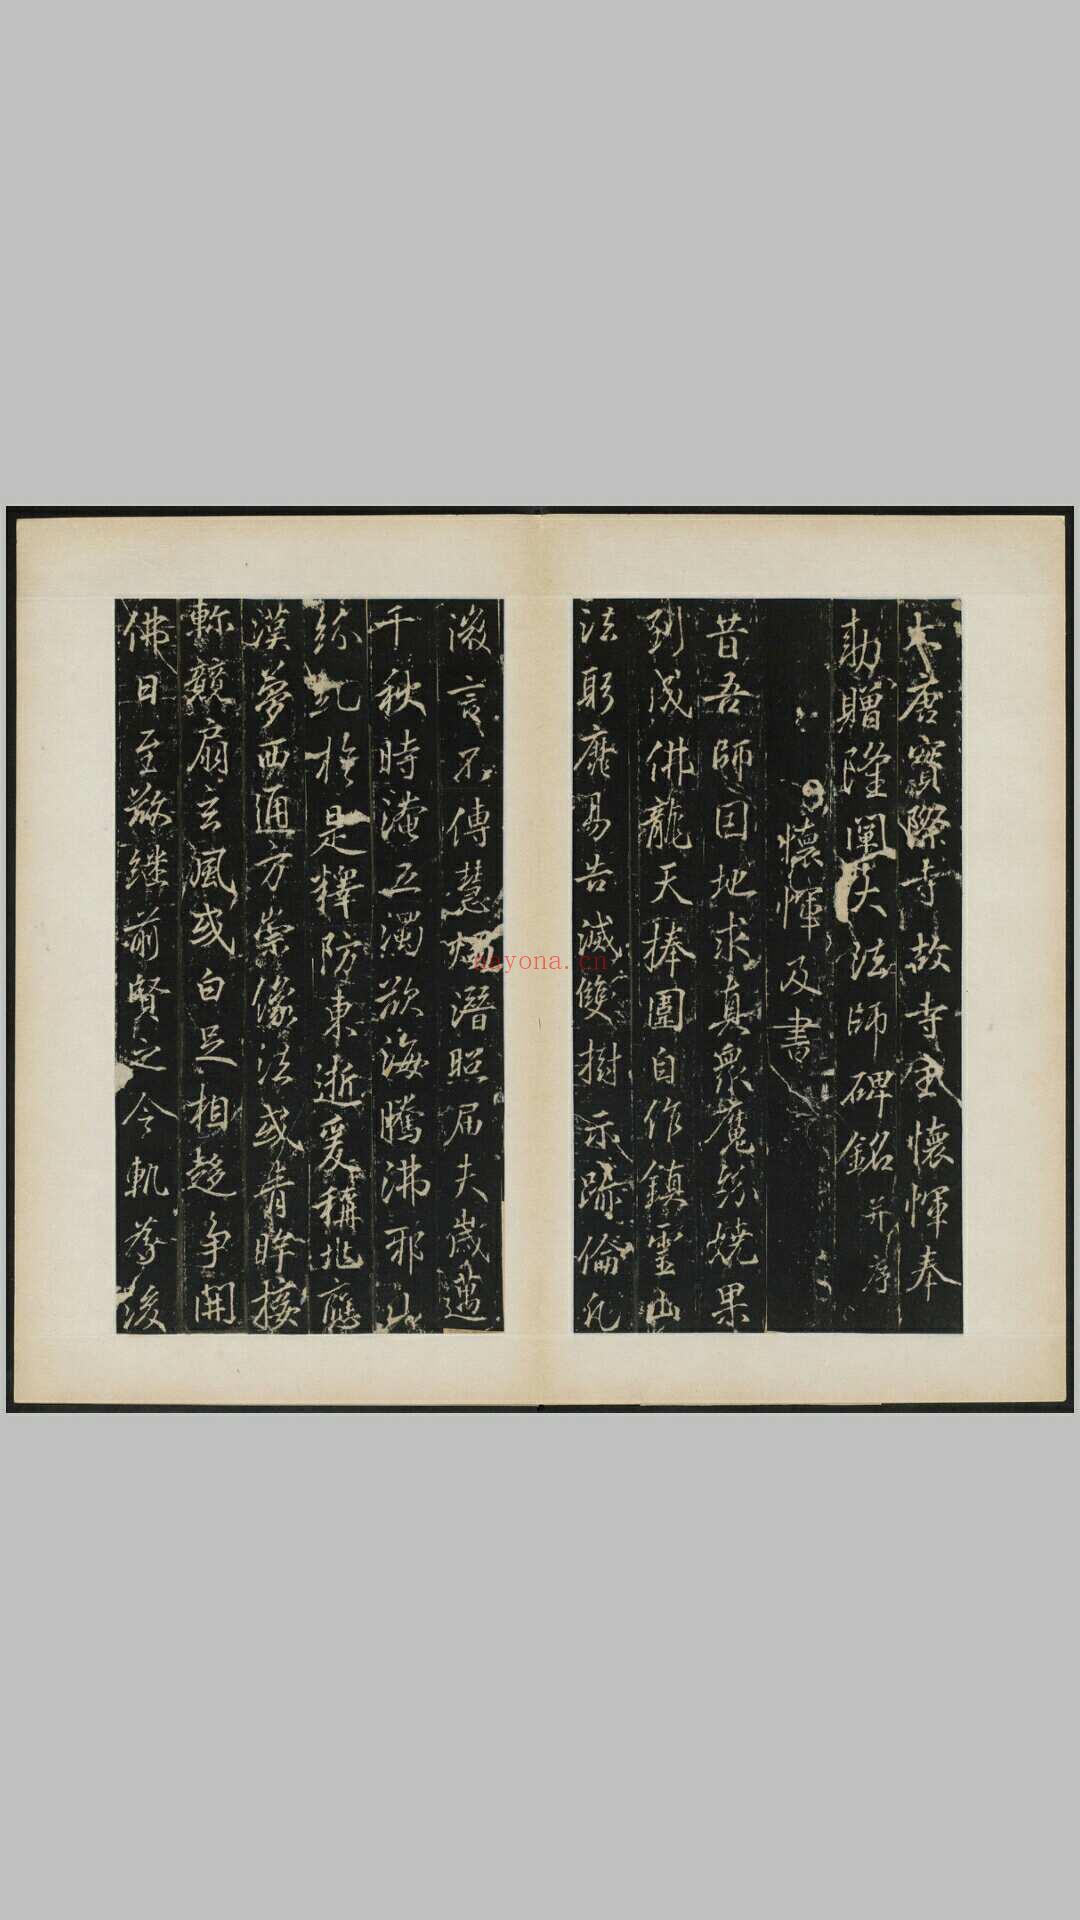 大唐實際寺故寺主懷惲奉
勅贈隆闡大法師碑銘并序
懷惲及書
昔吾師因地求真眾魔紛嬈果
到成佛龍天捧圍自作鎮靈山
法躬靡易告滅雙樹示跡倫凡
微言不傳慧燈潛照屆夫歲邁
千秋時淹五濁欲海騰沸邪山
紛糺於是釋防東逝爰稱北應
漢夢西通方崇像法或青眸接
軫競扇玄風或白足相趍爭開
佛日至㪅継前賢之令軌為後
kayona.cn